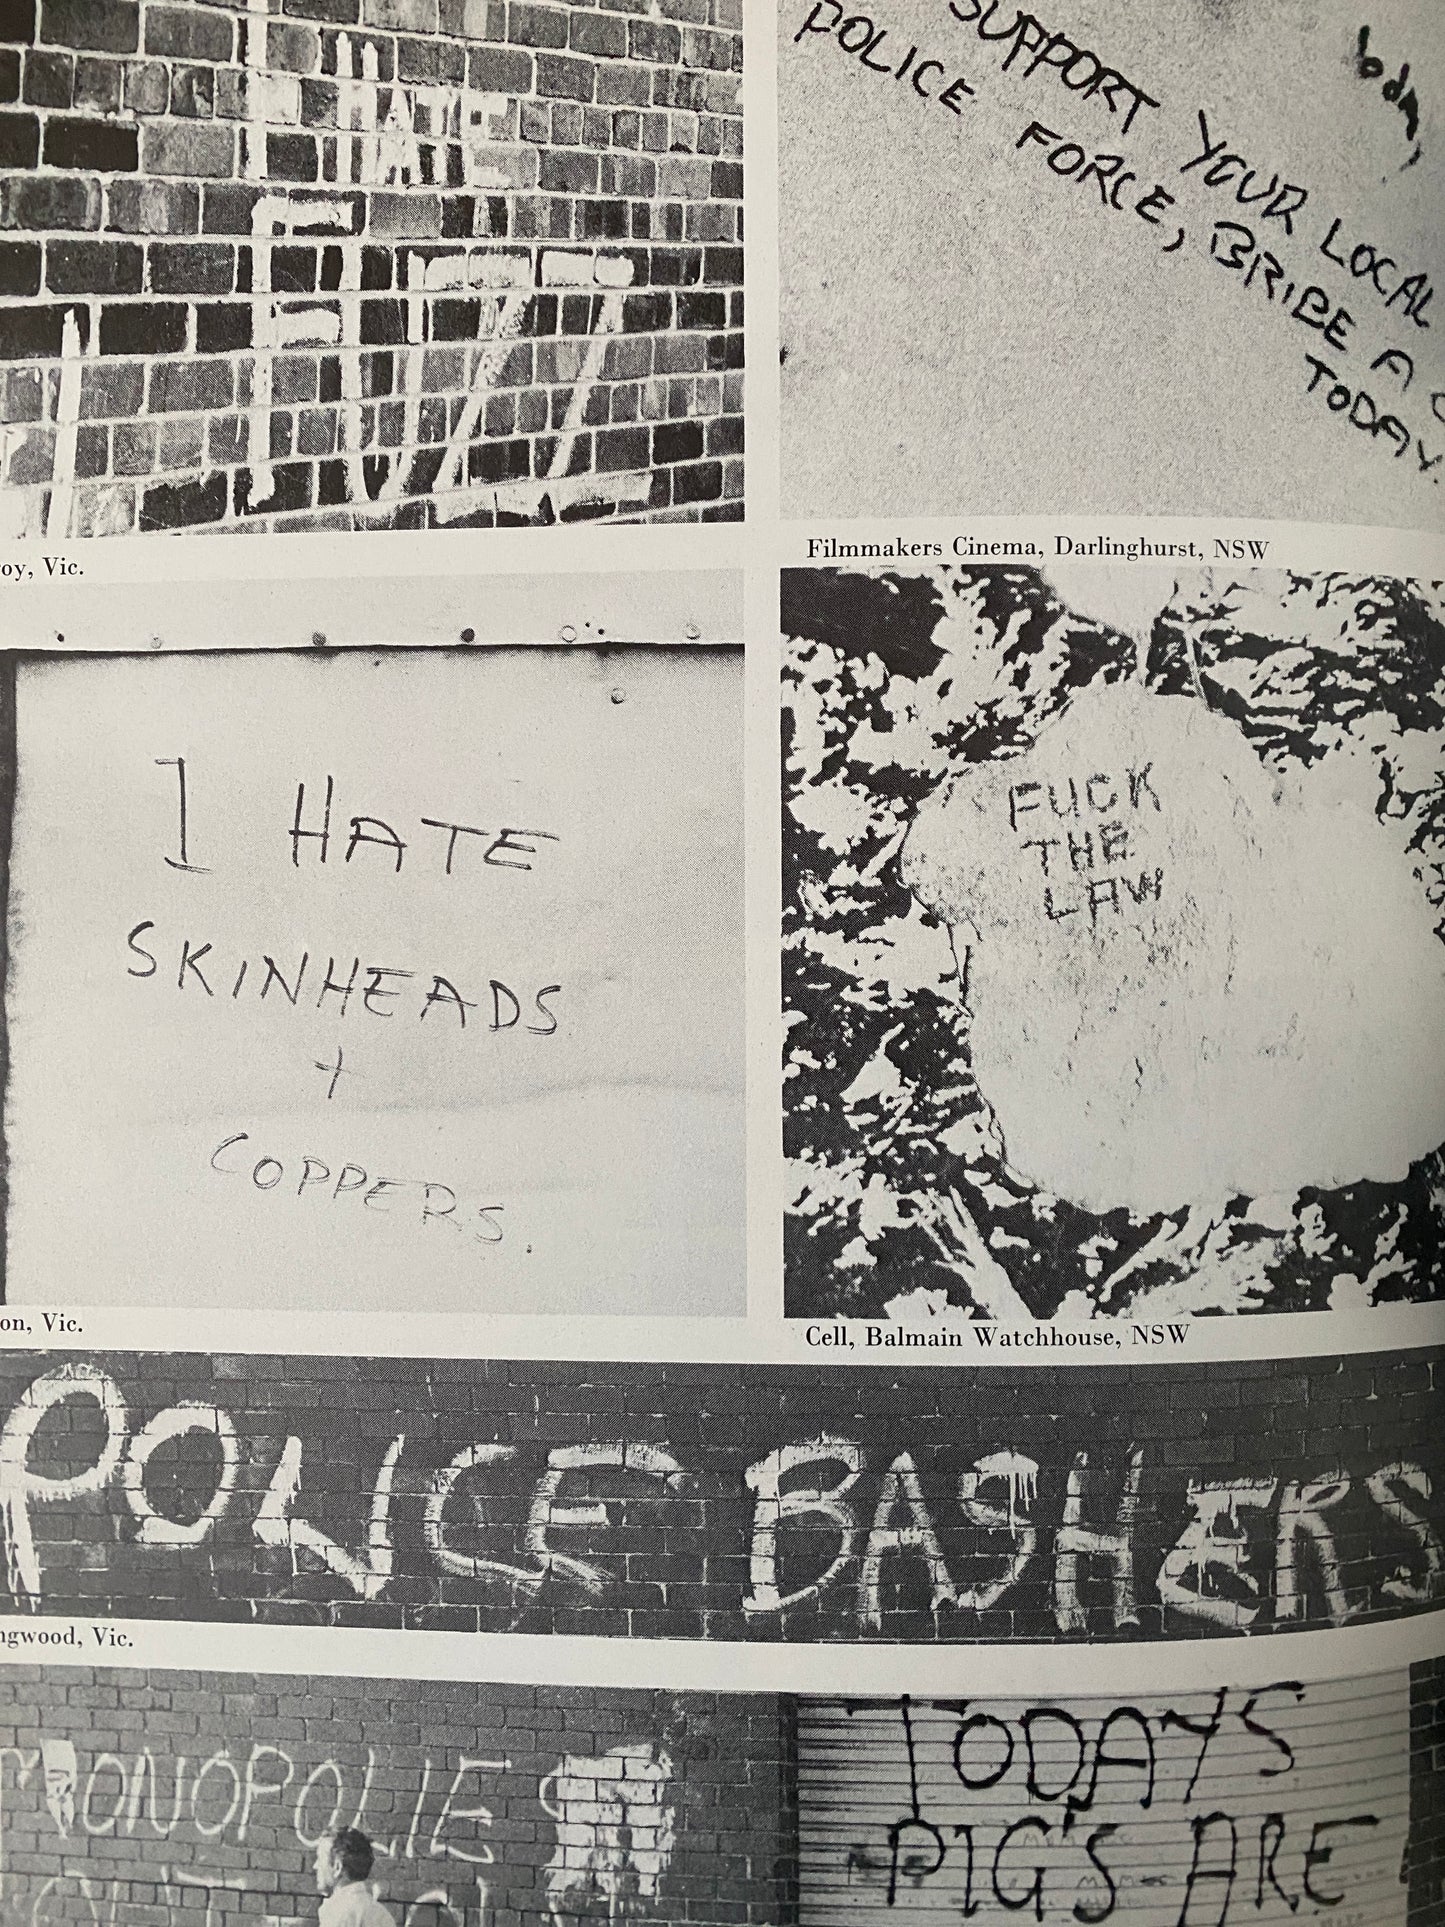 I HATE
SUPPORT YOUR LOCAL
POLICE FORCE, BRIBE A
TODAY.
body,
roy, Vic.
Filmmakers Cinema, Darlinghurst, NSW
I HATE
SKINHEADS
+
COPPERS.
FUCK
THE
LAW
on, Vic.
Cell, Balmain Watchhouse, NSW
POLICE BASHERS
ngwood, Vic.
MONOPOLIES
TODAY'S
PIG'S ARE